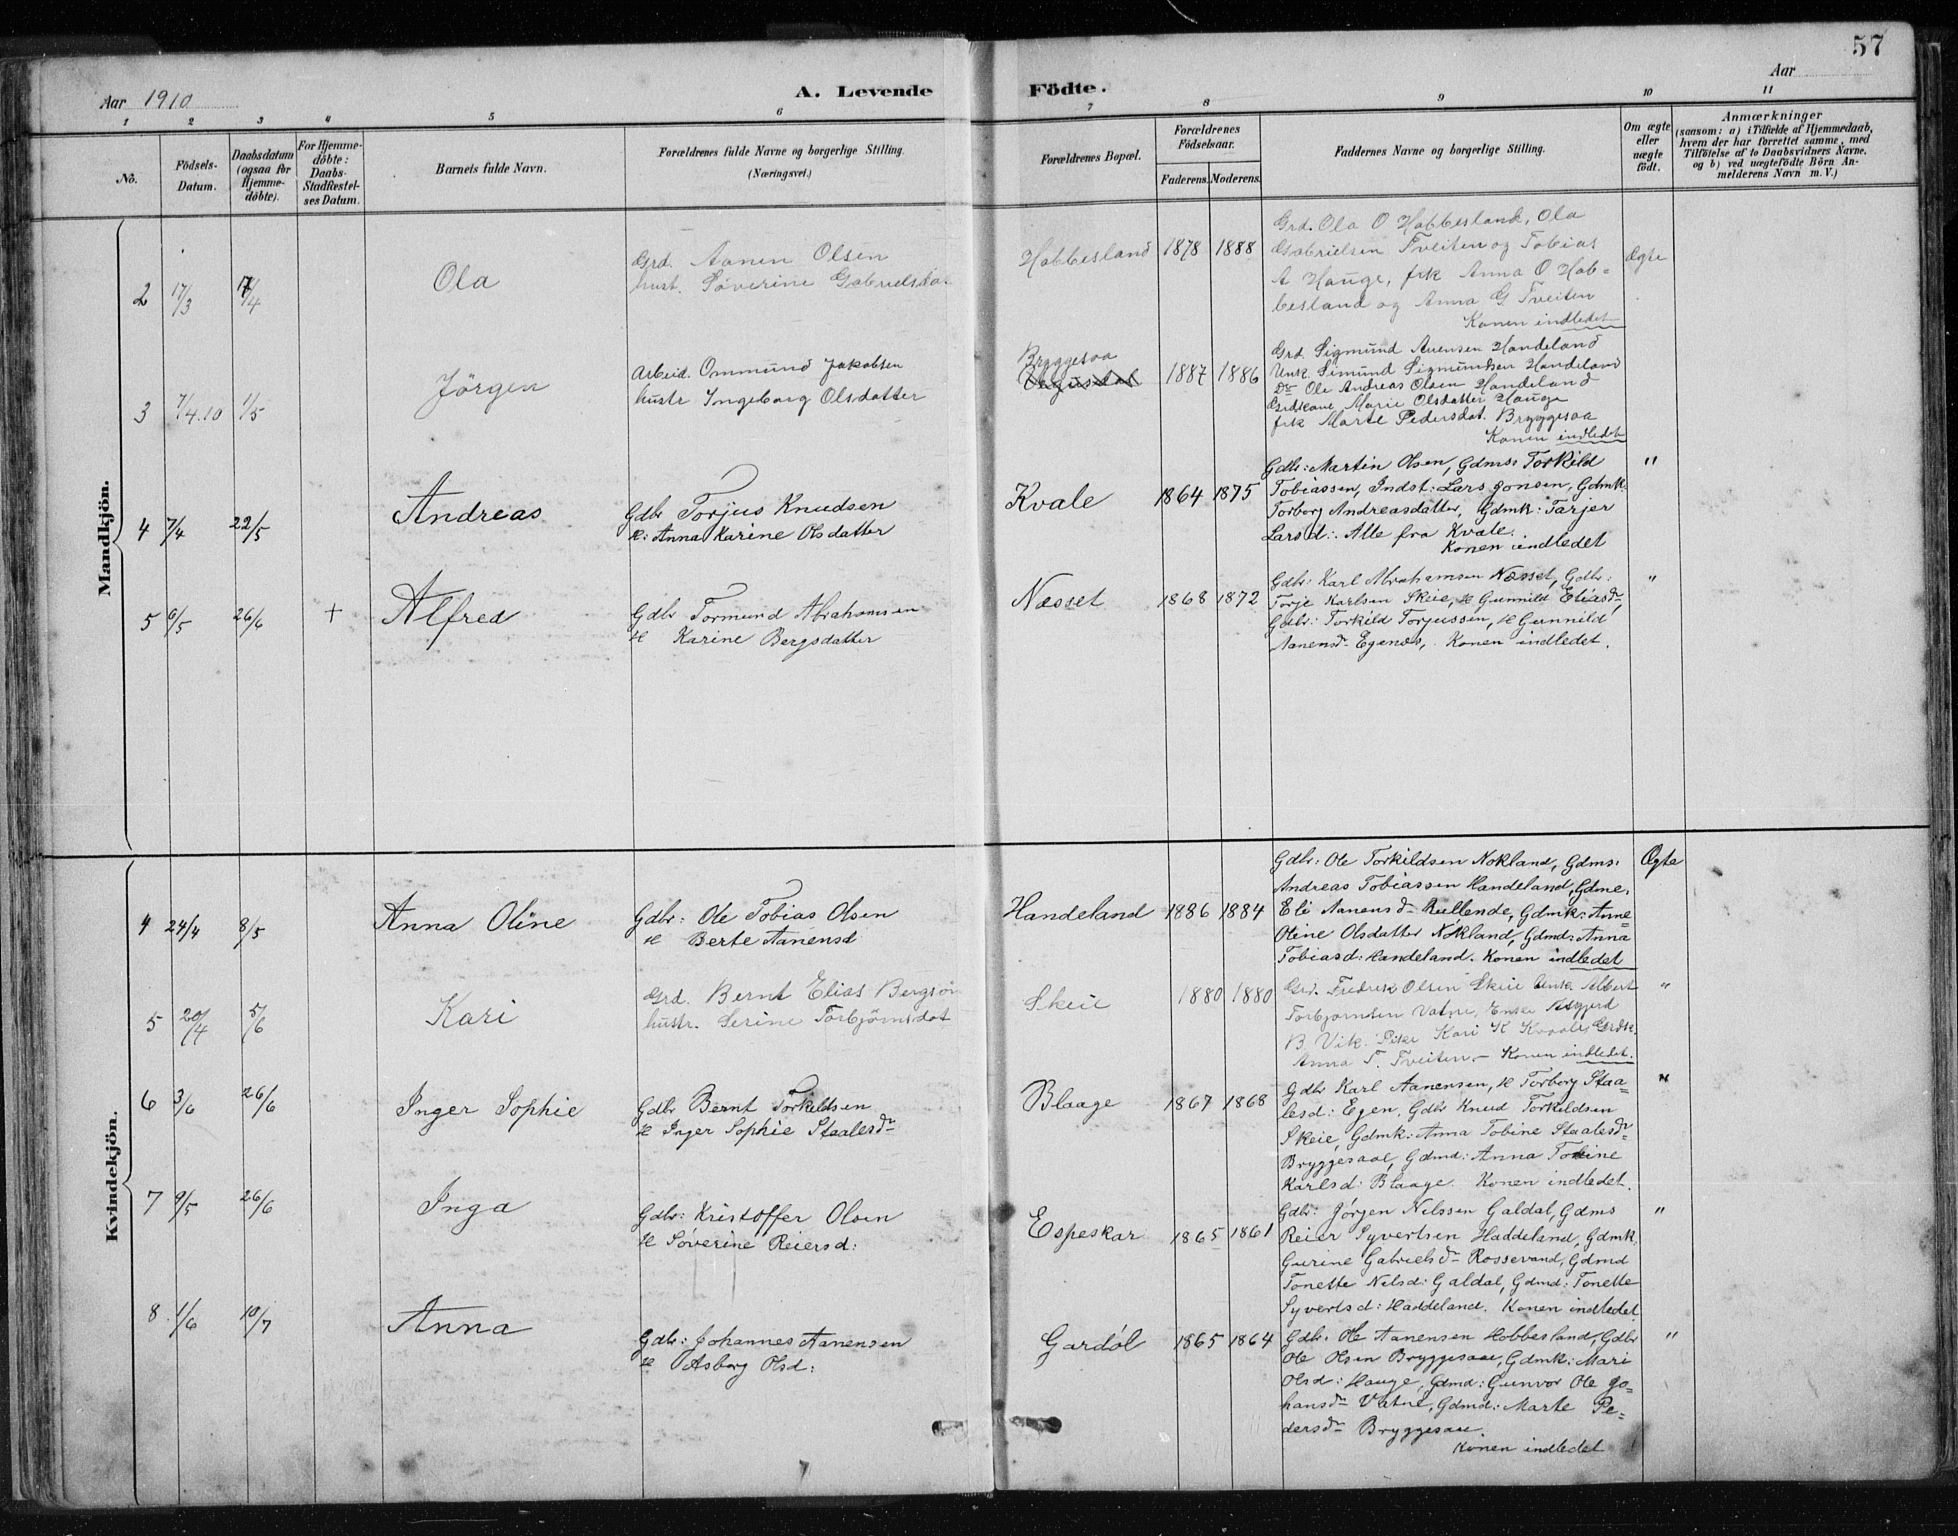 57
Aar 1910
A. Levende
Födte.
Aar
1 2 3 4 5 6 7 8 9 10 11
No.
Födsels-
Datum.
Daabsdatum
(ogsaa for
Hjemme-
döbte).
For Hjemme-
döbte:
Daabs-
Stadfæstel-
ses Datum.
Barnets fulde Navn.
Forældrenes fulde Navne og borgerlige Stilling.
(Næringsvei.)
Forældrenes Bopæl.
Forældrenes
Födselsaar.
Faderens. Moderens.
Faddernes Navne og borgerlige Stilling.
Om ægte
eller
uægte
födt.
Anmærkninger
(saasom: a) i Tilfælde af Hjemmedaab,
hvem der har forrettet samme, med
Tilföielse af to Daabsvidners Navne.
og b) ved uægtefödte Börn An-
melderens Navn m. V.)
Mandkjön.
2 17/3 17/4 Ola
Grd. Aanen Olsen
hust. Söverine Gabrielsda
Hobbesland 1878 1888
Grd. Ola O Hobbesland, Ola
Gabrielsen Tveiten og Tobias
A Hauge, frk Anna O Hob=
besland og Anna G Tveiten
Konen indledet
Ægte
3 7/4.10 1/5 Jörgen
Arbeid. Ommund Jakobsen
hustr Ingeborg Olsdatter
Bryggesaa
1887 1886
Grd. Sigmund Auensen Handeland
Unk. Simund Sigmundsen Handeland
Do Ole Andreas Olsen Handeland
Grdkone Marie Olsdatter Hauge
frk Marte Pedersdat. Bryggesaa
Konen indledet
4 7/4 22/5 Andreas
Gdbr Torjus Knudsen
H: Anna Karine Olsdatter
Kvale 1864 1875
Gdbr: Martin Olsen, Gdms: Torkild
Tobiassen, Indst: Lars Jonsen, Gdmk:
Torborg Andreasdatter, Gdmk: Tarjer
Larsd: Alle fra Kvale.
Konen indledet
"
5 6/5 26/6 + Alfred
Gdbr Tormund Abrahamsen
H Karine Bergsdatter
Næsset 1868 1872
Gdbr: Karl Abrahamsen Næsset, Gdbr:
Torje Karlsen Skeie, H Gunnild Eliasdr,
Gdbr: Torkild Torjussen, H Gunnild
Aanensdr Egenæs, Konen indledet.
"
Kvindekjön.
4 24/4 8/5 Anna Oline
Gdbr: Ole Tobias Olsen
H Berte Aanensd
Handeland 1886 1884
Gdbr: Ole Torkildsen Nokland, Gdms:
Andreas Tobiassen Handeland, Gdme:
Eli Aanensdr Gdmk: Anne
Oline Olsdatter Nokland, Gdmd: Anna
Tobiasd: Handeland. Konen indledet
Ægte
5 20/4 5/6 Kari
Grd. Bernt Elias Bergsön
hustr. Serine Torbjörnsdat
Skeie 1880 1880
Grd. Fredrik Olsen Skeie Unk. Albert
Torbjornsen Vatne, Enke Asgjerd
B. Vik. Pike Kari K Kvaale, Grdk.
Anna T. Tveiten. - Konen indledet.
"
6 3/6 26/6 Inger Sophie
Gdbr Bernt Torkildsen
H Inger Sophie Staalesdr
Blaage 1867 1868
Gdbr Karl Aanensen, H Torborg Staa=
lesd: Egen, Gdbr Knud Torkildsen
Skeie, Gdmk: Anna Tobine Staalesdr
Bryggesaae, Gdmd: Anna Tobine
Karlsd: Blaage. Konen indledet.
"
7 9/5 26/6 Inga
Gdbr: Kristoffer Olsen
H Söverine Reiersd:
Espeskar 1865 1861
Gdbr: Jörgen Nelssen Galdal, Gdms
Reier Syvertsen Haddeland, Gdmk
Gurine Gabrielsdr Rossevand, Gdmd
Tonette Nelsd: Galdal, Gdmd: Tonette
Syvertsd: Haddeland. Konen indledet
"
8 1/6 10/7 Anna
Gdbr: Johannes Aanensen
H Asborg Olsd:
Gardöl 1865 1864
Gdbr. Ole Aanensen Hobbesland, Gdbr
Ole Olsen Bryggesaae, Gdmk: Mari
Olsd: Hauge, Gdmd: Gunvor Ole Jo=
hansdr Vatne, Gdmd: Marte Pe=
dersdr Bryggesaae.
Konen indledet
"